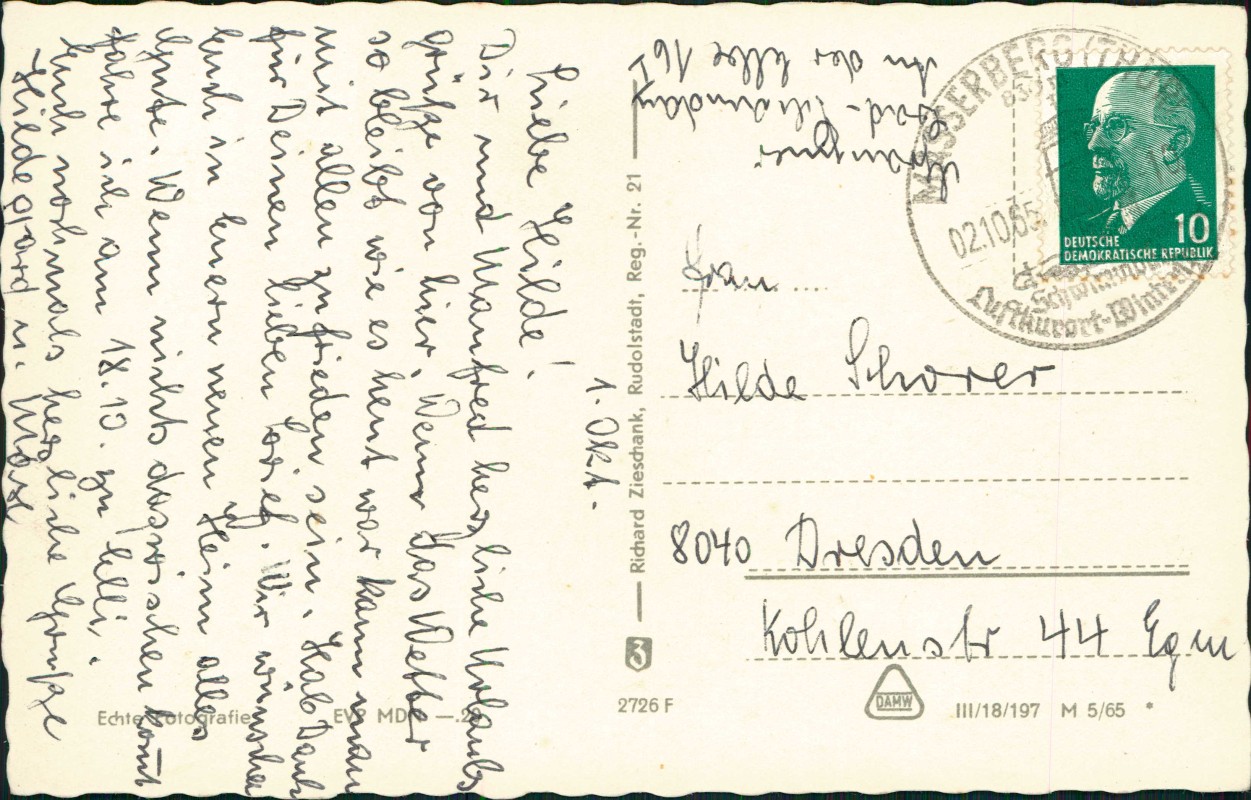 1. Okt.
Liebe Hilde!
Dir und Manfred herzliche Urlaubs
grüße von hier. Wenn das Wetter
so bleibt wie es heut war kann man
mit allen zufrieden sein. Hab Dank
für Deinen lieben Brief. Wir wünschen
Euch in Euern neuen Heim alles
Gute. Wenn nichts dazwischen komt
fahre ich am 18.10. zu Elli.
Euch nochmals herzliche Grüße
Hildegard u. Max
Bad-Schandau
An der Elbe 16 I
MASSERBERG (THÜR
02.10.65
Luftkurort-Winter
DEUTSCHE
DEMOKRATISCHE REPUBLIK
10
Frau
Hilde Schorer
8040 Dresden
Kohlenstr 44 Egm
Richard Zieschank, Rudolstadt, Reg.-Nr. 21
3
2726 F
DAMW
III/18/197 M 5/65 *
Echte Fotografie
EVP MDN —.2